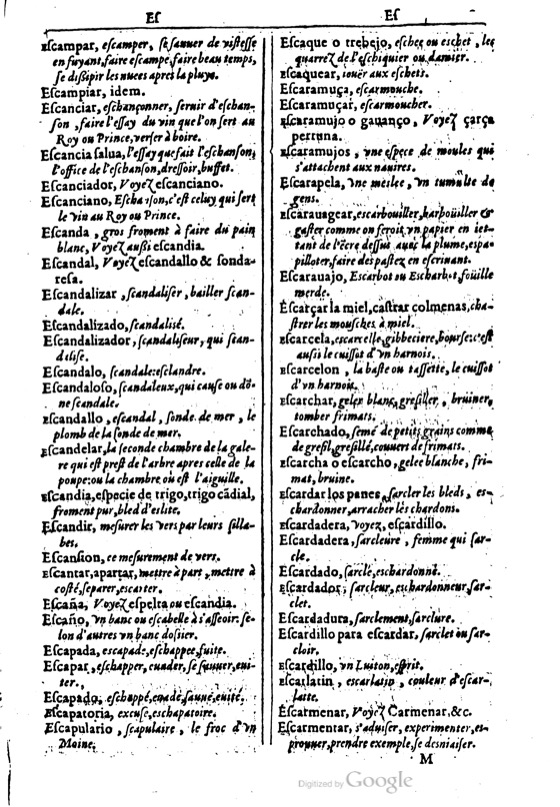 Eſ
Eſcampar, eſcamper, ſe ſauuer de viſteſſe
en fuyant, faire eſcampe, faire beau temps,
ſe diſsiper les nuees apres la pluye.
Eſcampiar, idem.
Eſcanciar, eſchançonner, ſeruir d'eſchan-
ſon, faire l'eſſay du vin que l'on ſert au
Roy ou Prince, verſer à boire.
Eſcancia ſalua, l'eſſay que fait l'eſchanſon,
l'office de l'eſchanſon, dreſſoir, buffet.
Eſcanciador, Voyez eſcanciano.
Eſcanciano, Eſchanſon, c'eſt celuy qui ſert
le vin au Roy ou Prince.
Eſcanda, gros froment à faire du pain
blanc, Voyez auſsi eſcandia.
Eſcandal, Voyez eſcandallo & ſonda-
reſa.
Eſcandalizar, ſcandaliſer, bailler ſcan-
dale.
Eſcandalizado, ſcandaliſé.
Eſcandalizador, ſcandaliſeur, qui ſcan-
daliſe.
Eſcandalo, ſcandale: eſclandre.
Eſcandaloſo, ſcandaleux, qui cauſe ou dõ-
ne ſcandale.
Eſcandallo, eſcandal, ſonde de mer, le
plomb de la ſonde de mer.
Eſcandelar, la ſeconde chambre de la gale-
re qui eſt preſt de l'arbre apres celle de la
poupe: ou la chambre, où eſt l'aiguille.
Eſcandia, eſpecie de trigo, trigo cãdial,
froment pur, bled d'eslite.
Eſcandir, meſurer les vers par leurs ſilla-
bes.
Eſcanſion, ce meſurement de vers.
Eſcantar, apartar, mettre à part, mettre à
coſté, ſeparer, eſcarter.
Eſcaña, Voyez eſpelta ou eſcandia.
Eſcaño, vn banc ou eſcabelle à s'aſſeoir: ſe-
lon d'autres vn banc doſsier.
Eſcapada, eſcapade, eſchappee, fuite.
Eſcapar, eſchapper, euader, ſe ſauuer, eui-
ter.
Eſcapado, eſchappé, euadé, ſauué, euité.
Eſcapatoria, excuſe, eſchapatoire.
Eſcapulario, ſcapulaire, le froc d'vn
Moine.
Eſ
Eſcaque o trebejo, eſchec ou eschet, les
quarrez de l'eſchiquier ou damier.
Eſcaquear, iouër aux eſchets.
Eſcaramuça, eſcarmouche.
Eſcaramuçar, eſcarmoucher.
Eſcaramujo o gauanço, Voyez çarça
perruna.
Eſcaramujos, vne eſpece de moules qui
s'attachent aux nauires.
Eſcarapela, vne meslee, vn tumulte de
gens.
Eſcarauagear, eſcarbouiller, barboüiller &
gaſter comme on feroit vn papier en iet-
tant de l'ẽcre deſſus auec la plume, eſpa-
pilloter, faire des paſtez en eſcriuant.
Eſcarauajo, Eſcarbot ou Eſcharbot, foüille
merde.
Eſcarçar la miel, caſtrar colmenas, cha-
ſtrer les mouſches à miel.
Eſcarcela, eſcarcelle, gibbeciere, bourſe: c'eſt
auſsi le cuiſſot d'vn harnois.
Eſcarcelon, la baſte ou taſſette, le cuiſſot
d'vn harnois.
Eſcarchar, geler blanc, greſiller, bruiner,
tomber frimats.
Eſcarchado, ſemé de petits grains comme
de greſil, greſillé, couuert de frimats.
Eſcarcha o eſcarcho, gelee blanche, fri-
mat, bruine.
Eſcardar los panes, ſarcler les bleds, eſ-
chardonner, arracher les chardons.
Eſcardadera, voyez, eſcardillo.
Eſcardadera, ſarcleure, femme qui ſar-
cle.
Eſcardado, ſarclé, eschardonné.
Eſcardador, ſarcleur, eschardonneur, ſar-
clet.
Eſcardadura, ſarclement, ſarclure.
Eſcardillo para eſcardar, ſarclet ou ſar-
cloir.
Eſcardillo, vn Luiton, eſprit.
Eſcarlatin, eſcarlatin, couleur d'eſcar-
latte.
Eſcarmenar, Voyez Carmenar, &c.
Eſcarmentar, s'aduiſer, experimenter, eſ-
prouuer, prendre exemple, ſe desniaiſer.
M
Digitized by Google